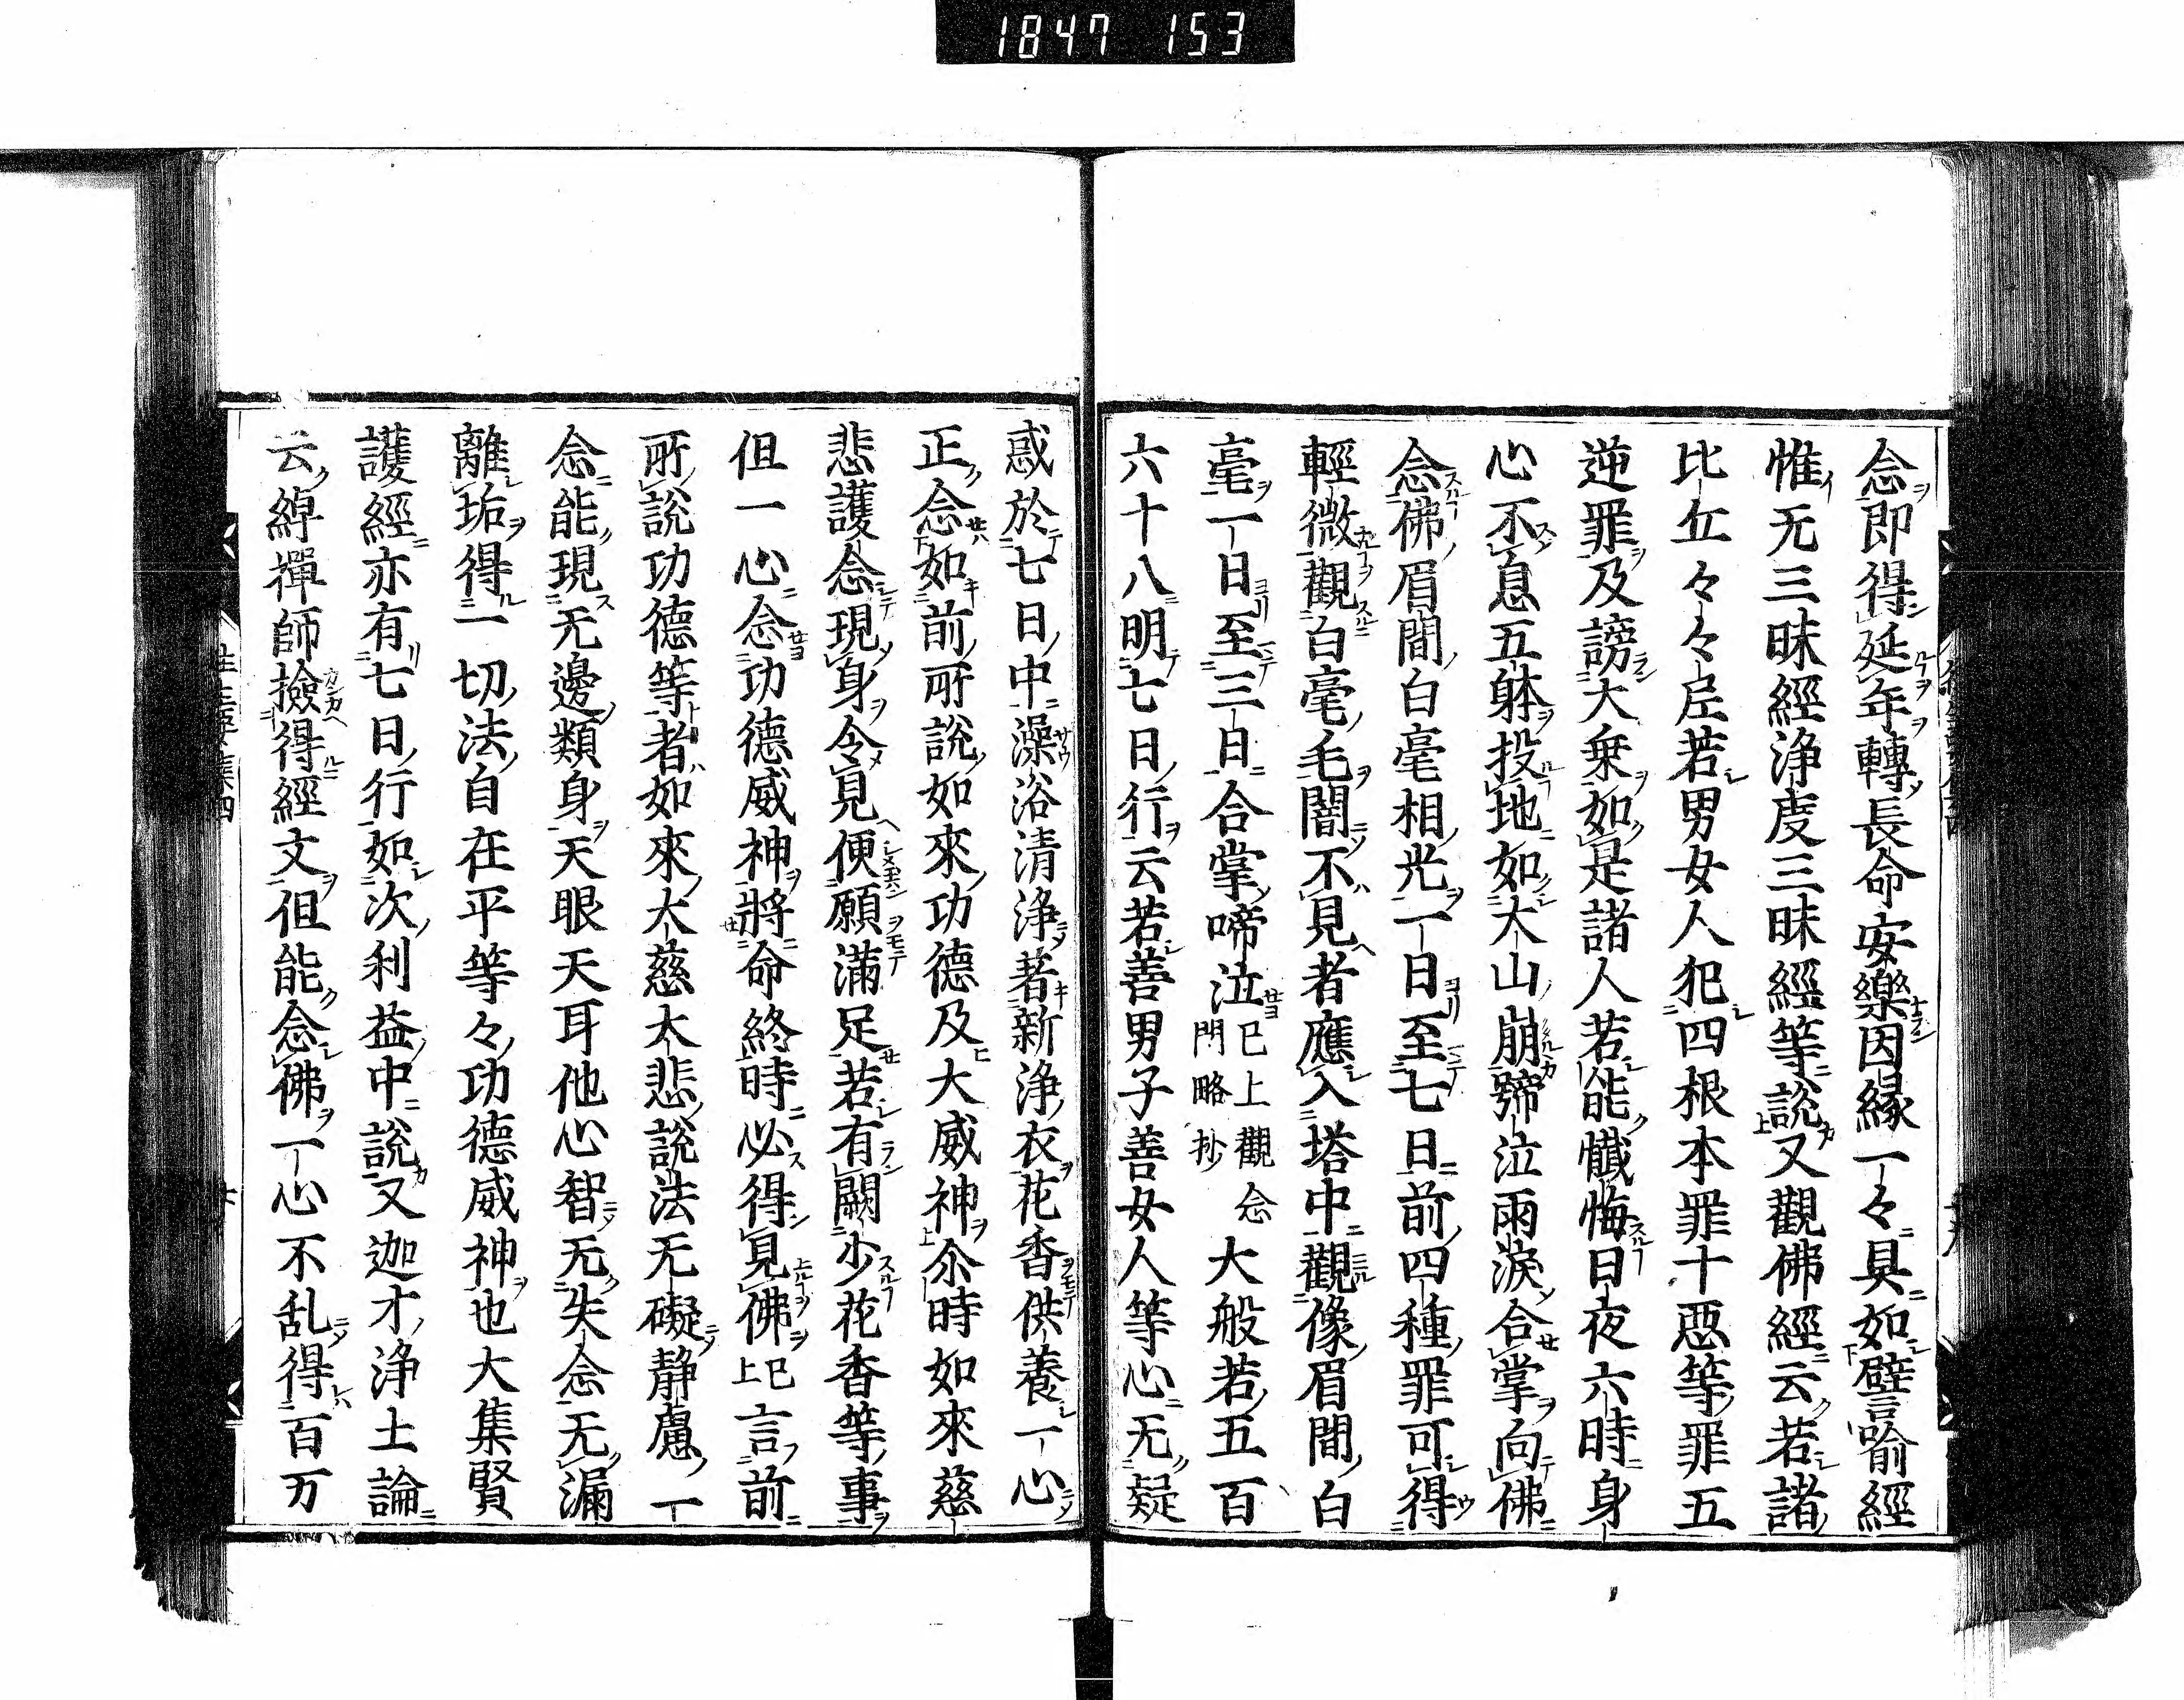 1847 153
念即得延年轉長命安樂因縁一々具如譬喻經
惟无三昧經浄度三昧經等說又觀佛經云若諸
比丘々々尼若男女人犯四根本罪十惡等罪五
逆罪及謗大乗如是諸人若能懺悔日夜六時身
心不息五躰投地如太山崩號泣雨淚合掌向佛
念佛眉間白毫相光一日至七日前四種罪可得
輕微觀白毫毛闇不見者應入塔中觀像眉間白
毫一日至三日合掌啼泣巳上觀念門略抄大般若五百
六十八明七日行云若善男子善女人等心无疑
惑於七日中澡浴清浄著新浄衣花香供養一心
正念如前所說如來功德及大威神尒時如來慈
悲護念現身令見便願滿足若有闕少花香等事
但一心念功德威神將命終時必得見佛巳上言前
所說功德等者如來大慈大悲說法无礙靜慮一
念能現无邊類身天眼天耳他心智无失念无漏
離垢得一切法自在平等々功德威神也大集賢
護經亦有七日行如次利益中說又迦才浄土論
云綽禪師撿得經文但能念佛一心不乱得百万